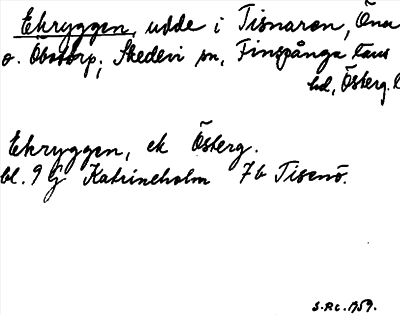 Ekryggen, udde i Tisnaren, Öna
o. Öbotorp, Skedevi sn, Finspånga läns
hd, Österg. l
Ekryggen, ek Österg.
bl. 9 G Katrineholm 7b Tisenö.
S.P.C. 1959.